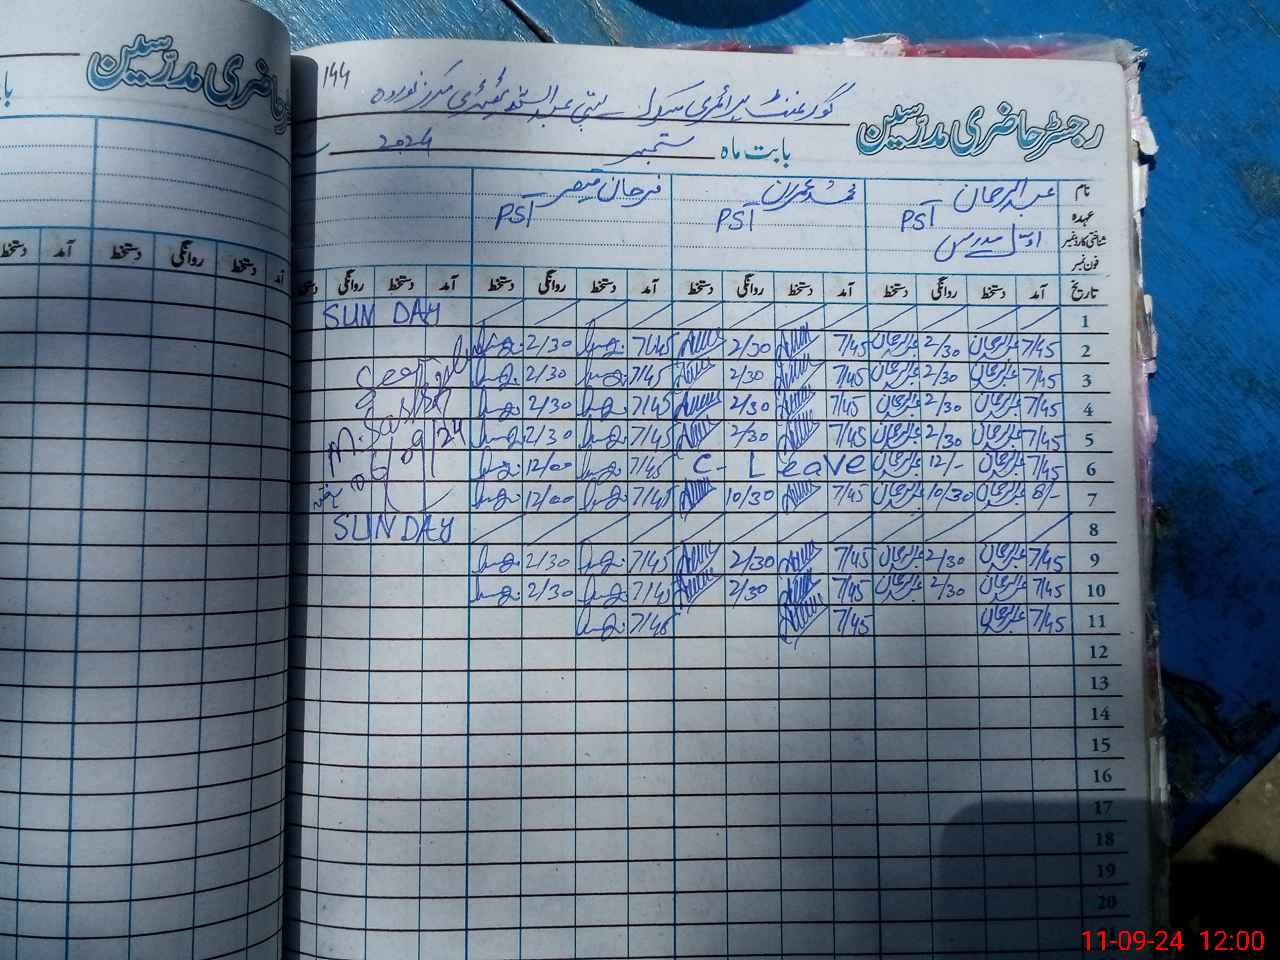 رجسٹر حاضری مدرسین
144
گورنمنٹ پرائمری سکول بستی عبدالستار
رجسٹر حاضری مدرسین
بابت ماہ ستمبر 2024
نام عبدالرحمان محمد عمران فرحان قیصر
عہدہ PST PST PST
شناختی کارڈ نمبر اول مدرس
فون نمبر
تاریخ آمد دستخط روانگی دستخط آمد دستخط روانگی دستخط آمد دستخط روانگی دستخط آمد دستخط روانگی دستخط
آمد دستخط روانگی دستخط آمد دستخط
1 SUNDAY
2 7/45 عبدالرحمان 2/30 عبدالرحمان 7/45 2/30 7/45 2/30
3 7/45 عبدالرحمان 2/30 عبدالرحمان 7/45 2/30 7/45 2/30
4 7/45 عبدالرحمان 2/30 عبدالرحمان 7/45 2/30 7/45 2/30
5 7/45 عبدالرحمان 2/30 عبدالرحمان 7/45 2/30 7/45 2/30
6 7/45 عبدالرحمان 12/- عبدالرحمان C-Leave 7/45 12/00
7 8/- عبدالرحمان 10/30 عبدالرحمان 7/45 10/30 7/45 12/00
8 SUNDAY
9 7/45 عبدالرحمان 2/30 عبدالرحمان 7/45 2/30 7/45 2/30
10 7/45 عبدالرحمان 2/30 عبدالرحمان 7/45 2/30 7/45 2/30
11 7/45 عبدالرحمان 7/45 7/45
12
13
14
15
16
17
18
19
20
11-09-24 12:00